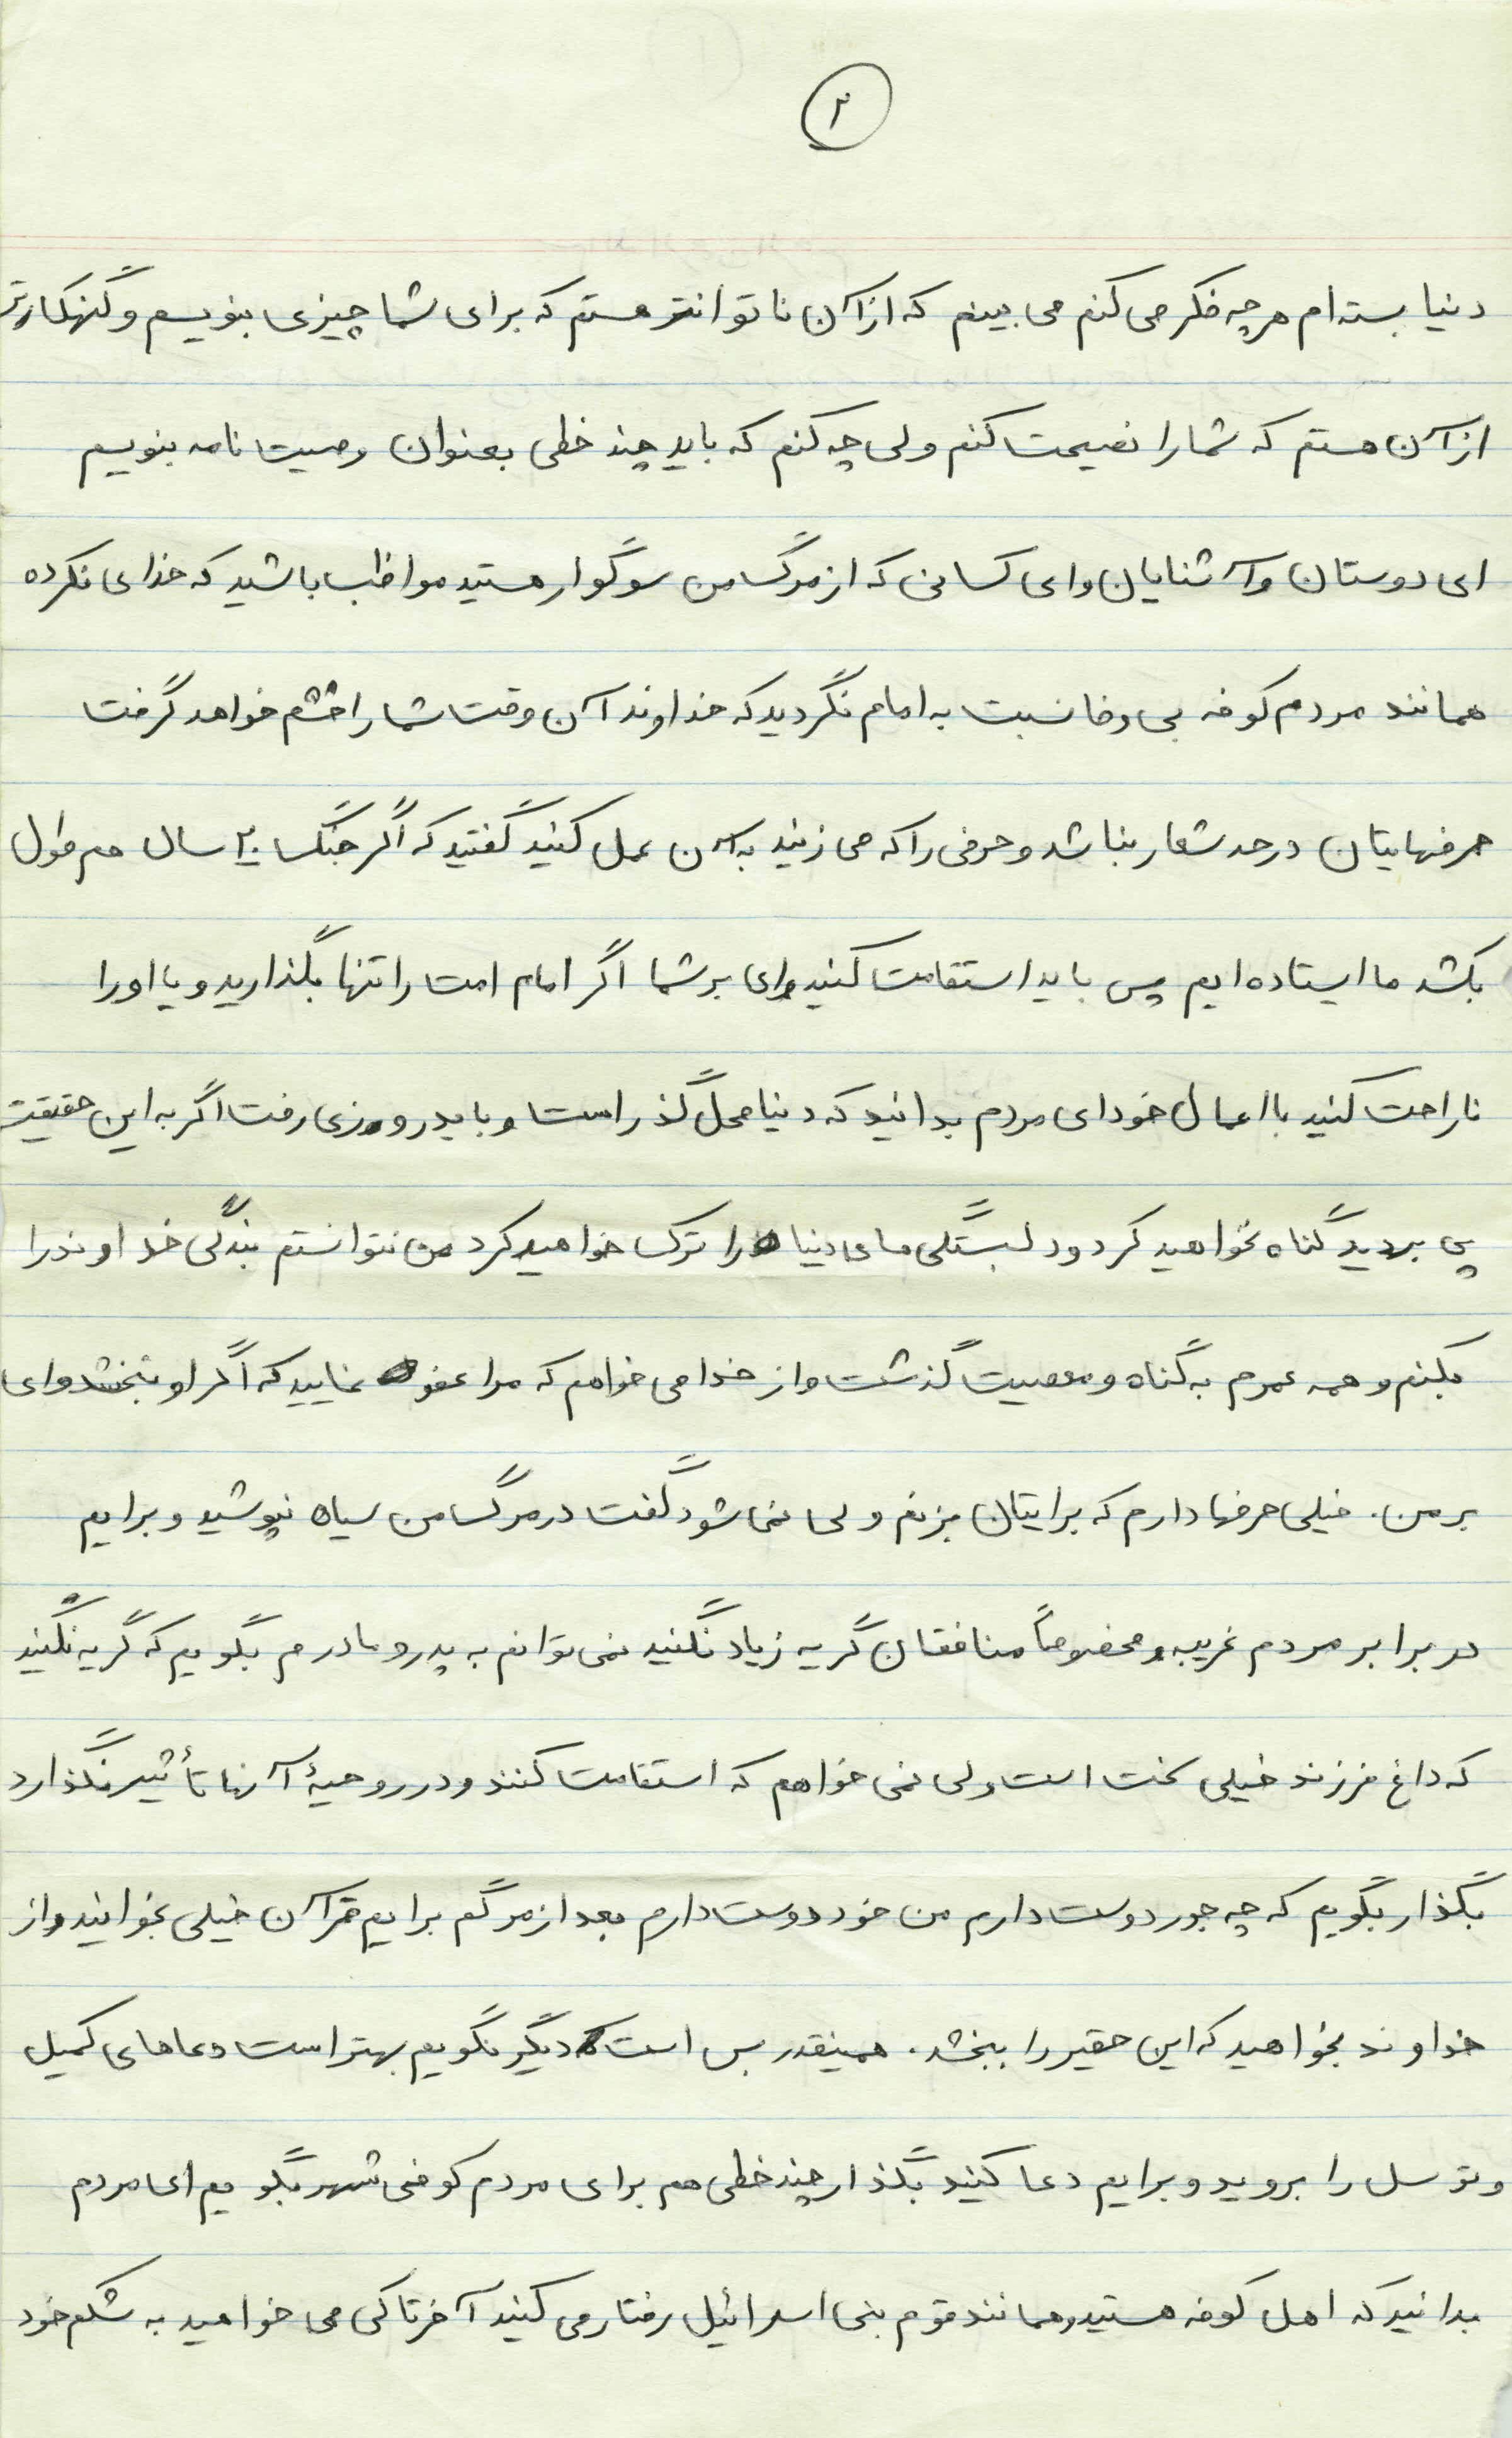 ۲
دنیا بسته ام هرچه فکر می کنم می بینم که از آن ناتوانتر هستم که برای شما چیزی بنویسم و گنهکارتر
از آن هستم که شما را نصیحت کنم ولی چه کنم که باید چند خطی بعنوان وصیت نامه بنویسم
ای دوستان و آشنایان و ای کسانی که از مرگ من سوگوار هستید مواظب باشید که خدای نکرده
همانند مردم کوفه بی وفا نسبت به امام نگردید که خداوند آن وقت شما را خشم خواهد گرفت
حرفهایتان در حد شعار نباشد و حرفی را که می زنید به آن عمل کنید گفتید که اگر جنگ ۲۰ سال هم طول
بکشد ما ایستاده ایم پس باید استقامت کنید وای بر شما اگر امام امت را تنها بگذارید و یا او را
ناراحت کنید با اعمال خود ای مردم بدانید که دنیا محل گذر است و باید روزی رفت اگر به این حقیقت
پی بردید گناه نخواهید کرد و دلبستگی های دنیا را ترک خواهید کرد من نتوانستم بندگی خداوند را
بکنم و همه عمرم به گناه و معصیت گذشت و از خدا می خواهم که مرا عفو نمایید که اگر او نبخشد وای
بر من. خیلی حرفها دارم که برایتان بزنم ولی نمی شود گفت در مرگ من سیاه نپوشید و برایم
در برابر مردم غریبه و مخصوصاً منافقان گریه زیاد نکنید نمی توانم به پدر و مادرم بگویم که گریه نکنید
که داغ فرزند خیلی سخت است ولی نمی خواهم که استقامت کنند و در روحیهٔ آنها تأثیر نگذارد
بگذار بگویم که چه جور دوست دارم من خود دوست دارم بعد از مرگم برایم قرآن خیلی بخوانید و از
خداوند بخواهید که این حقیر را ببخشد. همینقدر بس است که دیگر نگویم بهتر است دعاهای کمیل
و توسل را بروید و برایم دعا کنید بگذار چند خطی هم برای مردم کوفی شهر بگویم ای مردم
بدانید که اهل کوفه هستید و همانند قوم بنی اسرائیل رفتار می کنید آخر تا کی می خواهید به شکم خود